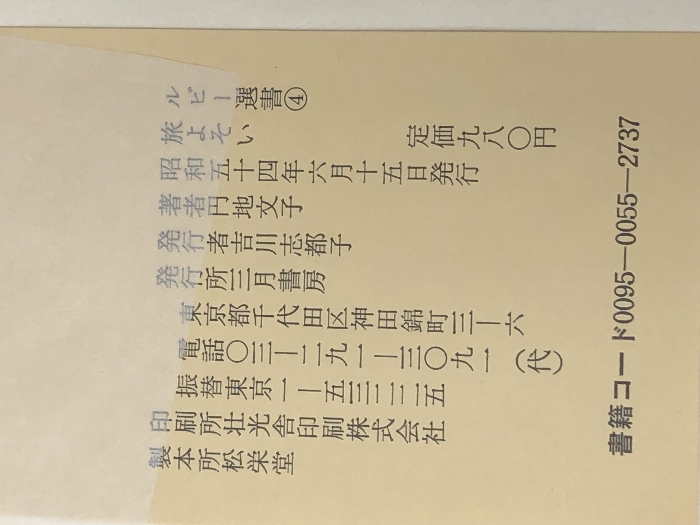 ルビー選書④
旅よそい 定価九八〇円
昭和五十四年六月十五日発行
著者円地文子
発行者吉川志都子
発行所三月書房
東京都千代田区神田錦町三―六
電話〇三―二九一―三〇九一(代)
振替東京一―五三三二二五
印刷所壮光舎印刷株式会社
製本所松栄堂
書籍コード0095―0055―2737